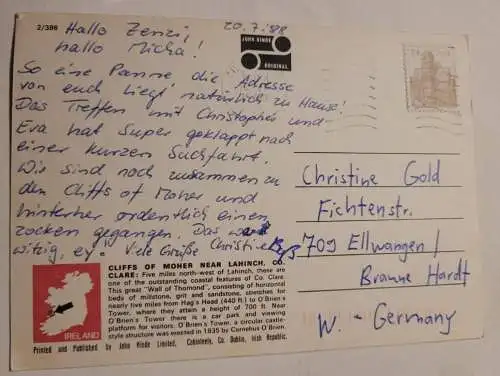 2/386
20.7.'88
Hallo Zenzi,
hallo Micha!
So eine Panne die Adresse
von euch liegt natürlich zu Hause!
Das Treffen mit Christopher und
Eva hat Super geklappt nach
einer kurzen Suchfahrt.
Wir sind noch zusammen zu
den Cliffs of Moher und
hinterher ordentlich einen
zocken gegangen. Das war
witzig, ey. Viele Grüße Christine
JOHN HINDE
ORIGINAL
Christine Gold
Fichtenstr.
709 Ellwangen/
Braune Hardt
W.-Germany
IRELAND
CLIFFS OF MOHER NEAR LAHINCH, CO.
CLARE: Five miles north-west of Lahinch, these are
one of the outstanding coastal features of Co. Clare.
This great "Wall of Thomond", consisting of horizontal
beds of millstone, grit and sandstone, stretches for
nearly five miles from Hag's Head (440 ft.) to O'Brien's
Tower, where they attain a height of 700 ft. Near
O'Brien's Tower there is a car park and viewing
platform for visitors. O'Brien's Tower, a circular castle-
style structure was erected in 1835 by Cornelius O'Brien.
Printed and Published by John Hinde Limited, Cabinteely, Co. Dublin, Irish Republic.